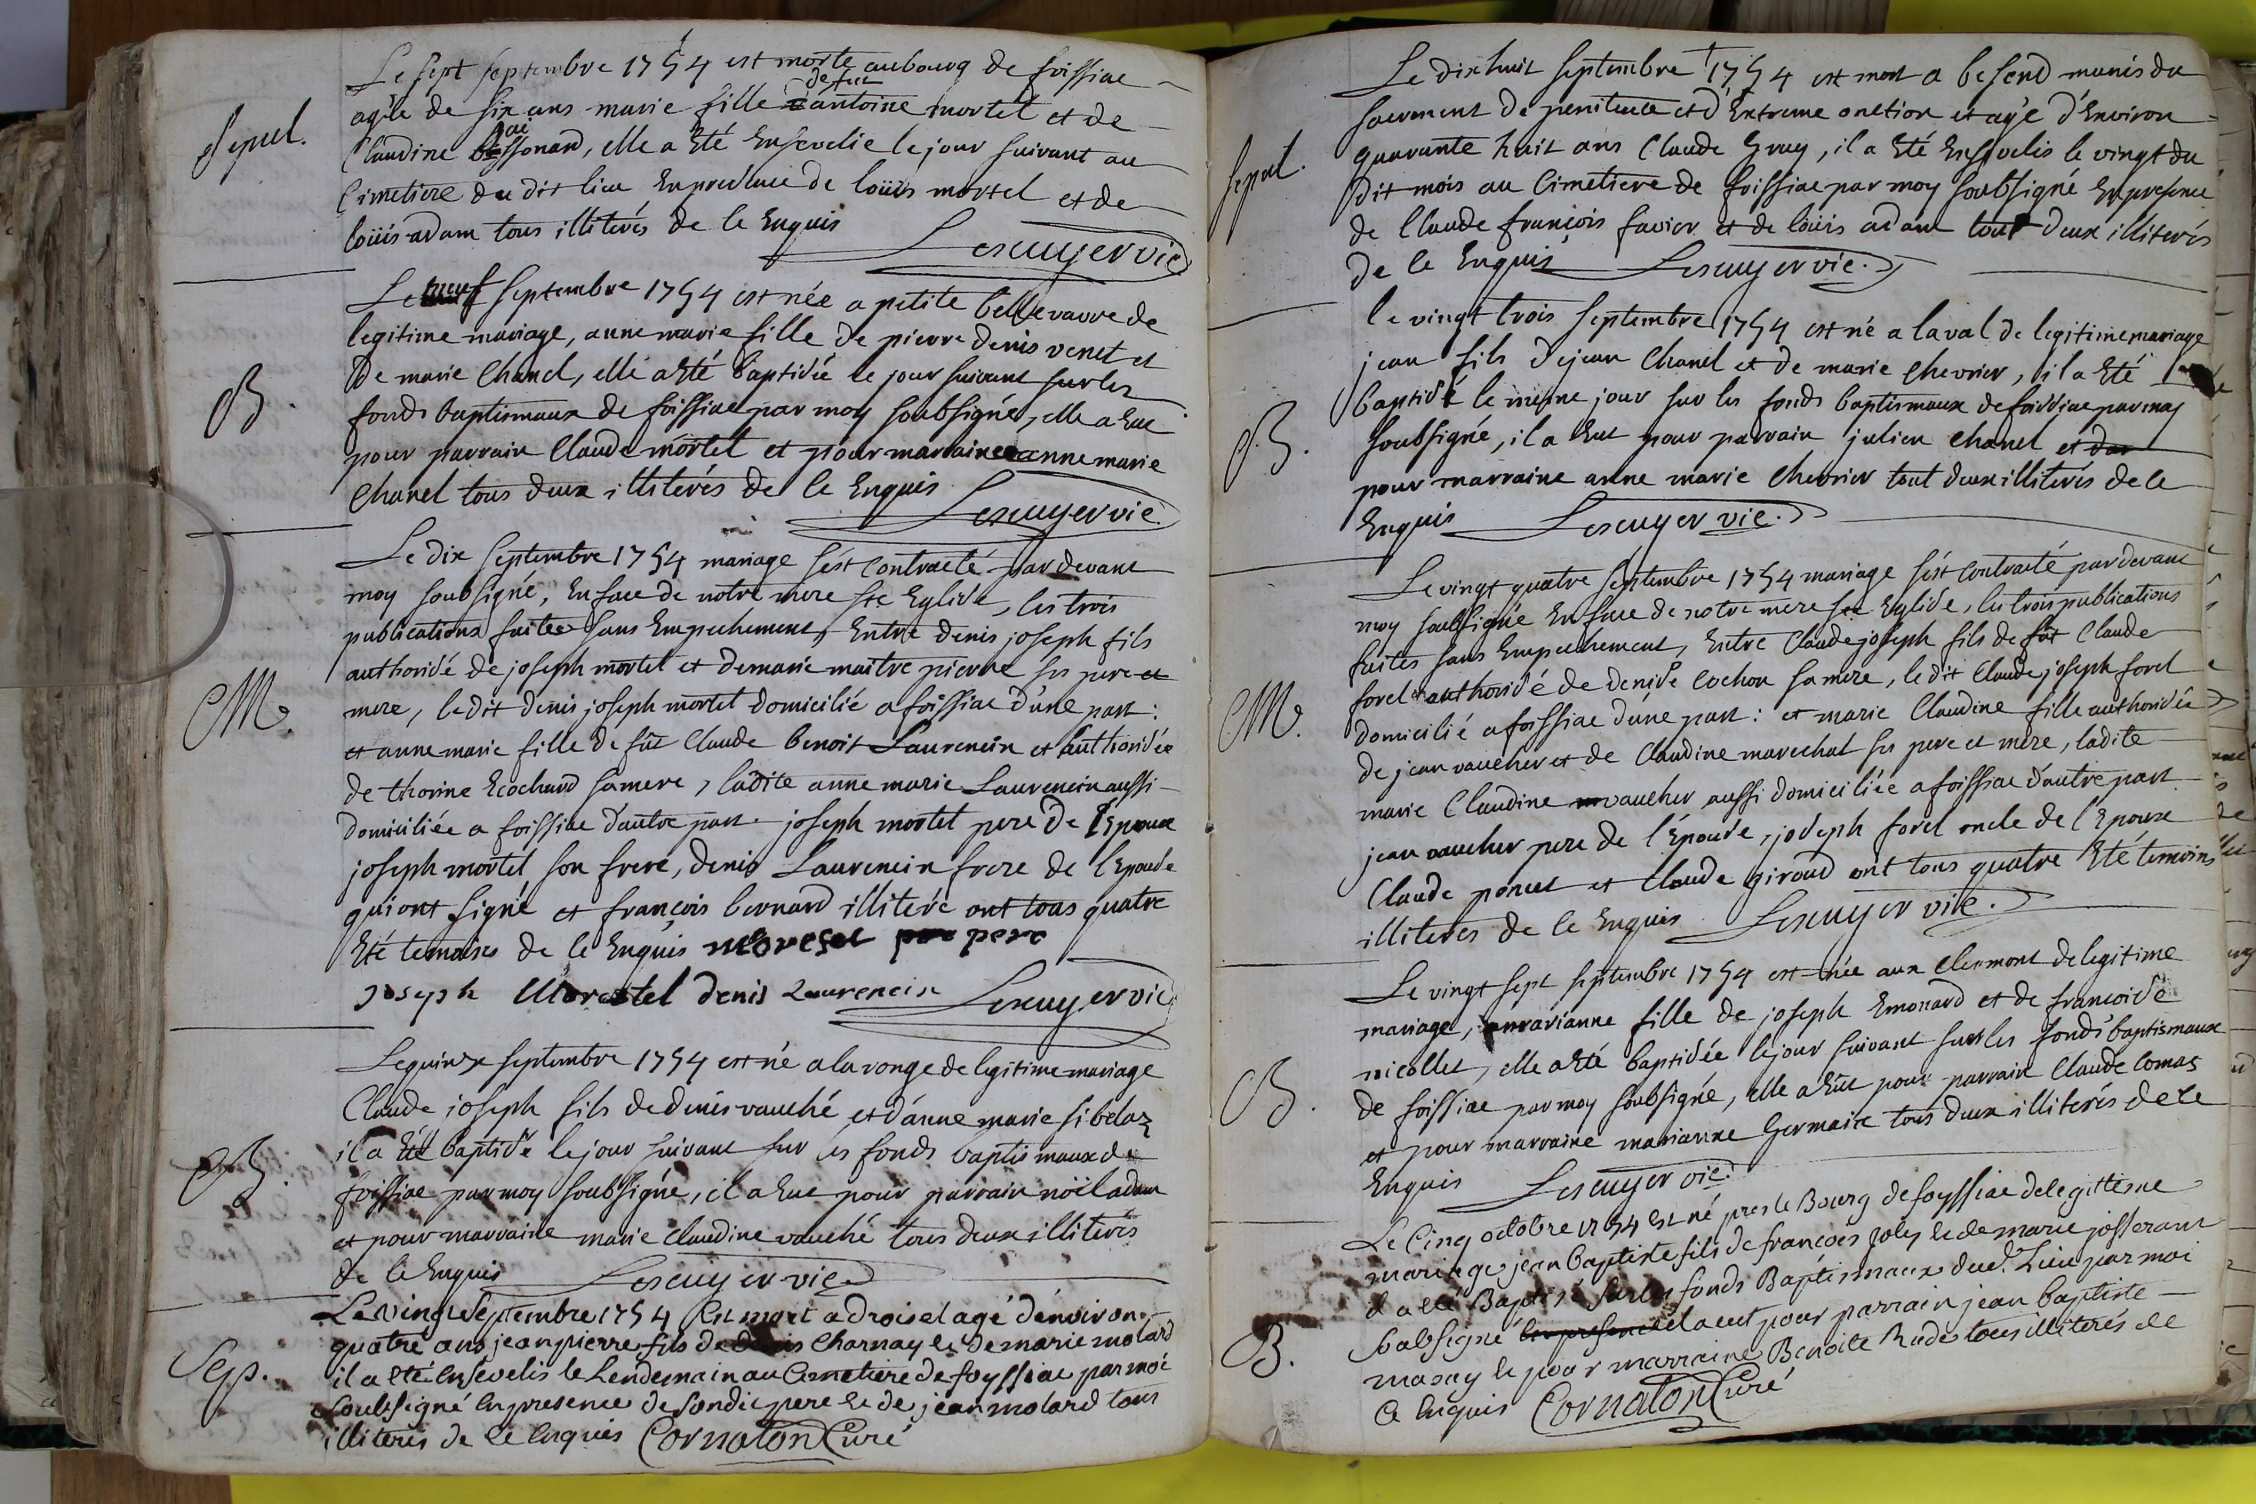 Le sept septembre 1754 est morte au bourg de foissiac
Sepul.
agée de six ans marie fille de fut antoine mortel et de
Claudine bessonard, elle a Eté Ensevelie le jour suivant au
Cimetiere du dit lieu En presence de loüis mortel et de
loüis adam tous illiterés de ce Enquis Lescuyer vic
Le neuf septembre 1754 est née a petite bellevavre de
legitime mariage, anne marie fille de pierre denis venet et
B.
de marie Chanel, elle a Eté baptisée le jour suivant sur les
fonds baptismaux de foissiac par moy soubsigné, elle a Eue
pour parrain Claude mortel et pour marraine anne marie
Chanel tous deux illiterés de ce Enquis Lescuyer vic.
Le dix septembre 1754 mariage s'est Contracté par devant
moy soubsigné, En face de notre mere ste Eglise, les trois
publications faites sans Empechement, Entre denis joseph fils
authorisé de joseph mortel et de marie maitre pierre ses pere et
M.
mere, le dit denis joseph mortel domicilié a foissiac d'une part:
et anne marie fille de fût Claude benoit Laurencin et authorisée
de thorine Ecochard sa mere, ladite anne marie Laurencin aussi
domiciliée a foissiac d'autre part. joseph mortel pere de l'Epoux
joseph mortel son frere, denis Laurencin frere de l'Epouse
qui ont signé et françois bernard illiteré ont tous quatre
Eté temoins de ce Enquis pere
joseph Morestel denis Laurencin Lescuyer vic
Le quinze septembre 1754 est né a la ronge de legitime mariage
Claude joseph fils de denis vauché et d'anne marie sibelaz
B.
il a Eté baptisé le jour suivant sur les fonds baptismaux de
foissiac par moy soubsigné, il a Eue pour parrain noël adam
et pour marraine marie Claudine vauché tous deux illiterés
de ce Enquis Lescuyer vic
Le vingt septembre 1754 Est mort a droisel agé d'environ
quatre ans jean pierre fils de denis Charnay et de marie molard
Sep.
il a été ensevelis le Lendemain au Cimetiere de foyssiac par moi
soubsigné en presence de sondic pere et de jean molard tous
illiterés de ce enquis Cornaton Curé
Le dix huit septembre 1754 est mort a besend munis du
sacrement de penitence et d'Extreme onction et agé d'Environ
Sepul.
quarante huit ans Claude Gray, il a Eté Ensevelis le vingt du
dit mois au Cimetiere de foissiac par moy soubsigné En presence
de Claude françois favier et de loüis adam tout deux illiterés
de ce Enquis Lescuyer vic.
le vingt trois septembre 1754 est né a laval de legitime mariage
jean fils de jean Chanel et de marie Chevrier, il a Eté
B.
baptisé le même jour sur les fonds baptismaux de foissiac par moy
soubsigné, il a Eut pour parrain julien Chanel et
pour marraine anne marie Chevrier tout deux illiterés de ce
Enquis Lescuyer vic.
Le vingt quatre septembre 1754 mariage s'est Contracté par devant
moy soubsigné En face de notre mere ste Eglise, les trois publications
faites sans Empechement, Entre Claude joseph fils de fût Claude
forel et authorisé de denise Cochon sa mere, le dit Claude joseph forel
M.
domicilié a foissiac d'une part: et marie Claudine fille authorisée
de jean vaucher et de Claudine marechal ses pere et mere, ladite
marie Claudine vaucher aussi domiciliée a foissiac d'autre part
jean vaucher pere de l'Epouse, joseph forel oncle de l'Epoux
Claude poncet et Claude giroud ont tous quatre Eté temoins
illiterés de ce Enquis Lescuyer vic.
Le vingt sept septembre 1754 est née aux Clermont de legitime
mariage, marianne fille de joseph Emonard et de francoise
nicollet, elle a Eté baptisée le jour suivant sur les fonds baptismaux
B.
de foissiac par moy soubsigné, elle a Eüe pour parrain Claude Comas
et pour marraine marianne Germain tous deux illiterés de ce
Enquis Lescuyer vic.
Le Cinq octobre 1754 est né pres le Bourg de foyssiac de legittime
mariage jean baptiste fils de francois joly et de marie josserant
il a eté Baptisé sur les fonds Baptismaux dud. Lieu par moi
B.
Soubsigné en presence il a eut pour parrain jean baptiste
masay et pour marraine Benoite Rude tous illiterés de
ce enquis Cornaton Curé